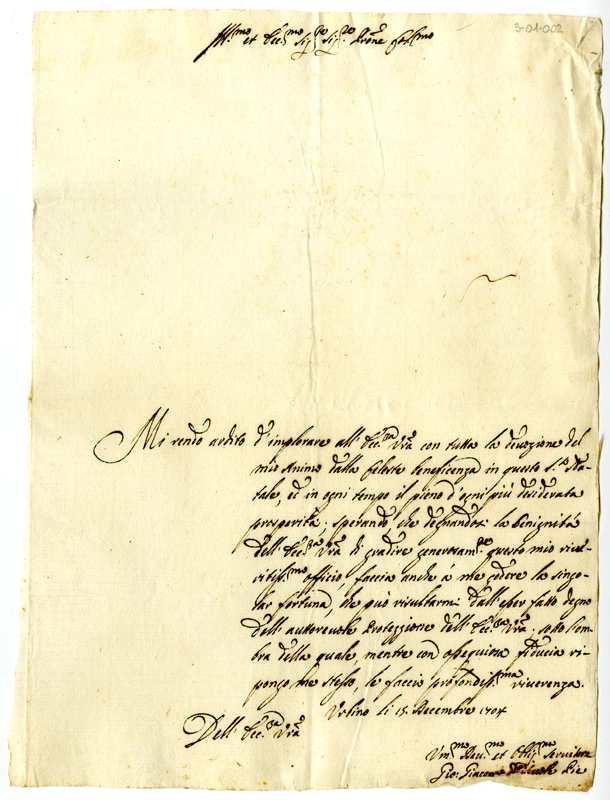 3-01-002
Ill.mo et Ecc.mo Sig.re Sig.re Prone Col.mo
Mi rendo ardito d'implorare all'Ecc.za Vrã con tutta la devozione del
mio Animo dalla Celeste beneficenza in questo S.to Na-
tale, ed in ogni tempo il pieno d'ogni più desiderata
prosperità; sperando, che degnandosi la benignità
dell'Ecc.za Vrã di gradire generosam.te questo mio river-
entiss.mo officio, faccia anche à me godere la singo-
lar fortuna, che può risultarmi dall'esser fatto degno
dell'autorevole Protezzione dell'Ecc.za Vrã; sotto l'om-
bra della quale, mentre con ossequiosa fiducia ri-
pongo me stesso, le faccio profondiss.ma riverenza.
Urbino li 15. Decembre 1704
Dell'Ecc.za Vrã
Um.mo Dev.mo et Obblig.mo Servitore
Gio: Giacomo